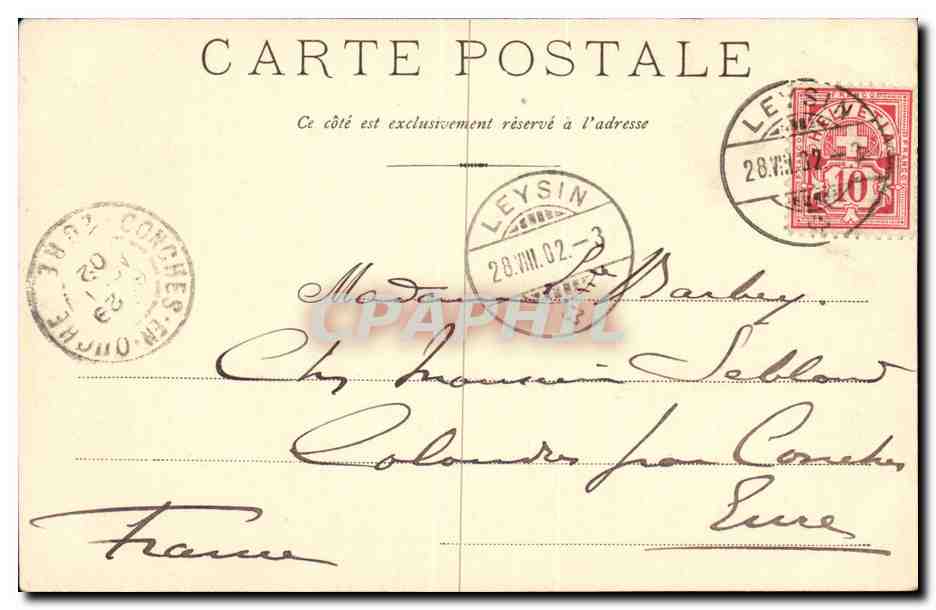 CARTE POSTALE
Ce côté est exclusivement réservé à l'adresse
LEYSIN
28.VIII.02.-3
FRANCO
HELVETIA
10
LEYSIN
28.VIII.02.-3
CONCHES-EN-OUCHE
EURE
29
02
CPAPHIL
Madame Barbey.
Chez Monsieur Leblond
par Conches
Eure
France